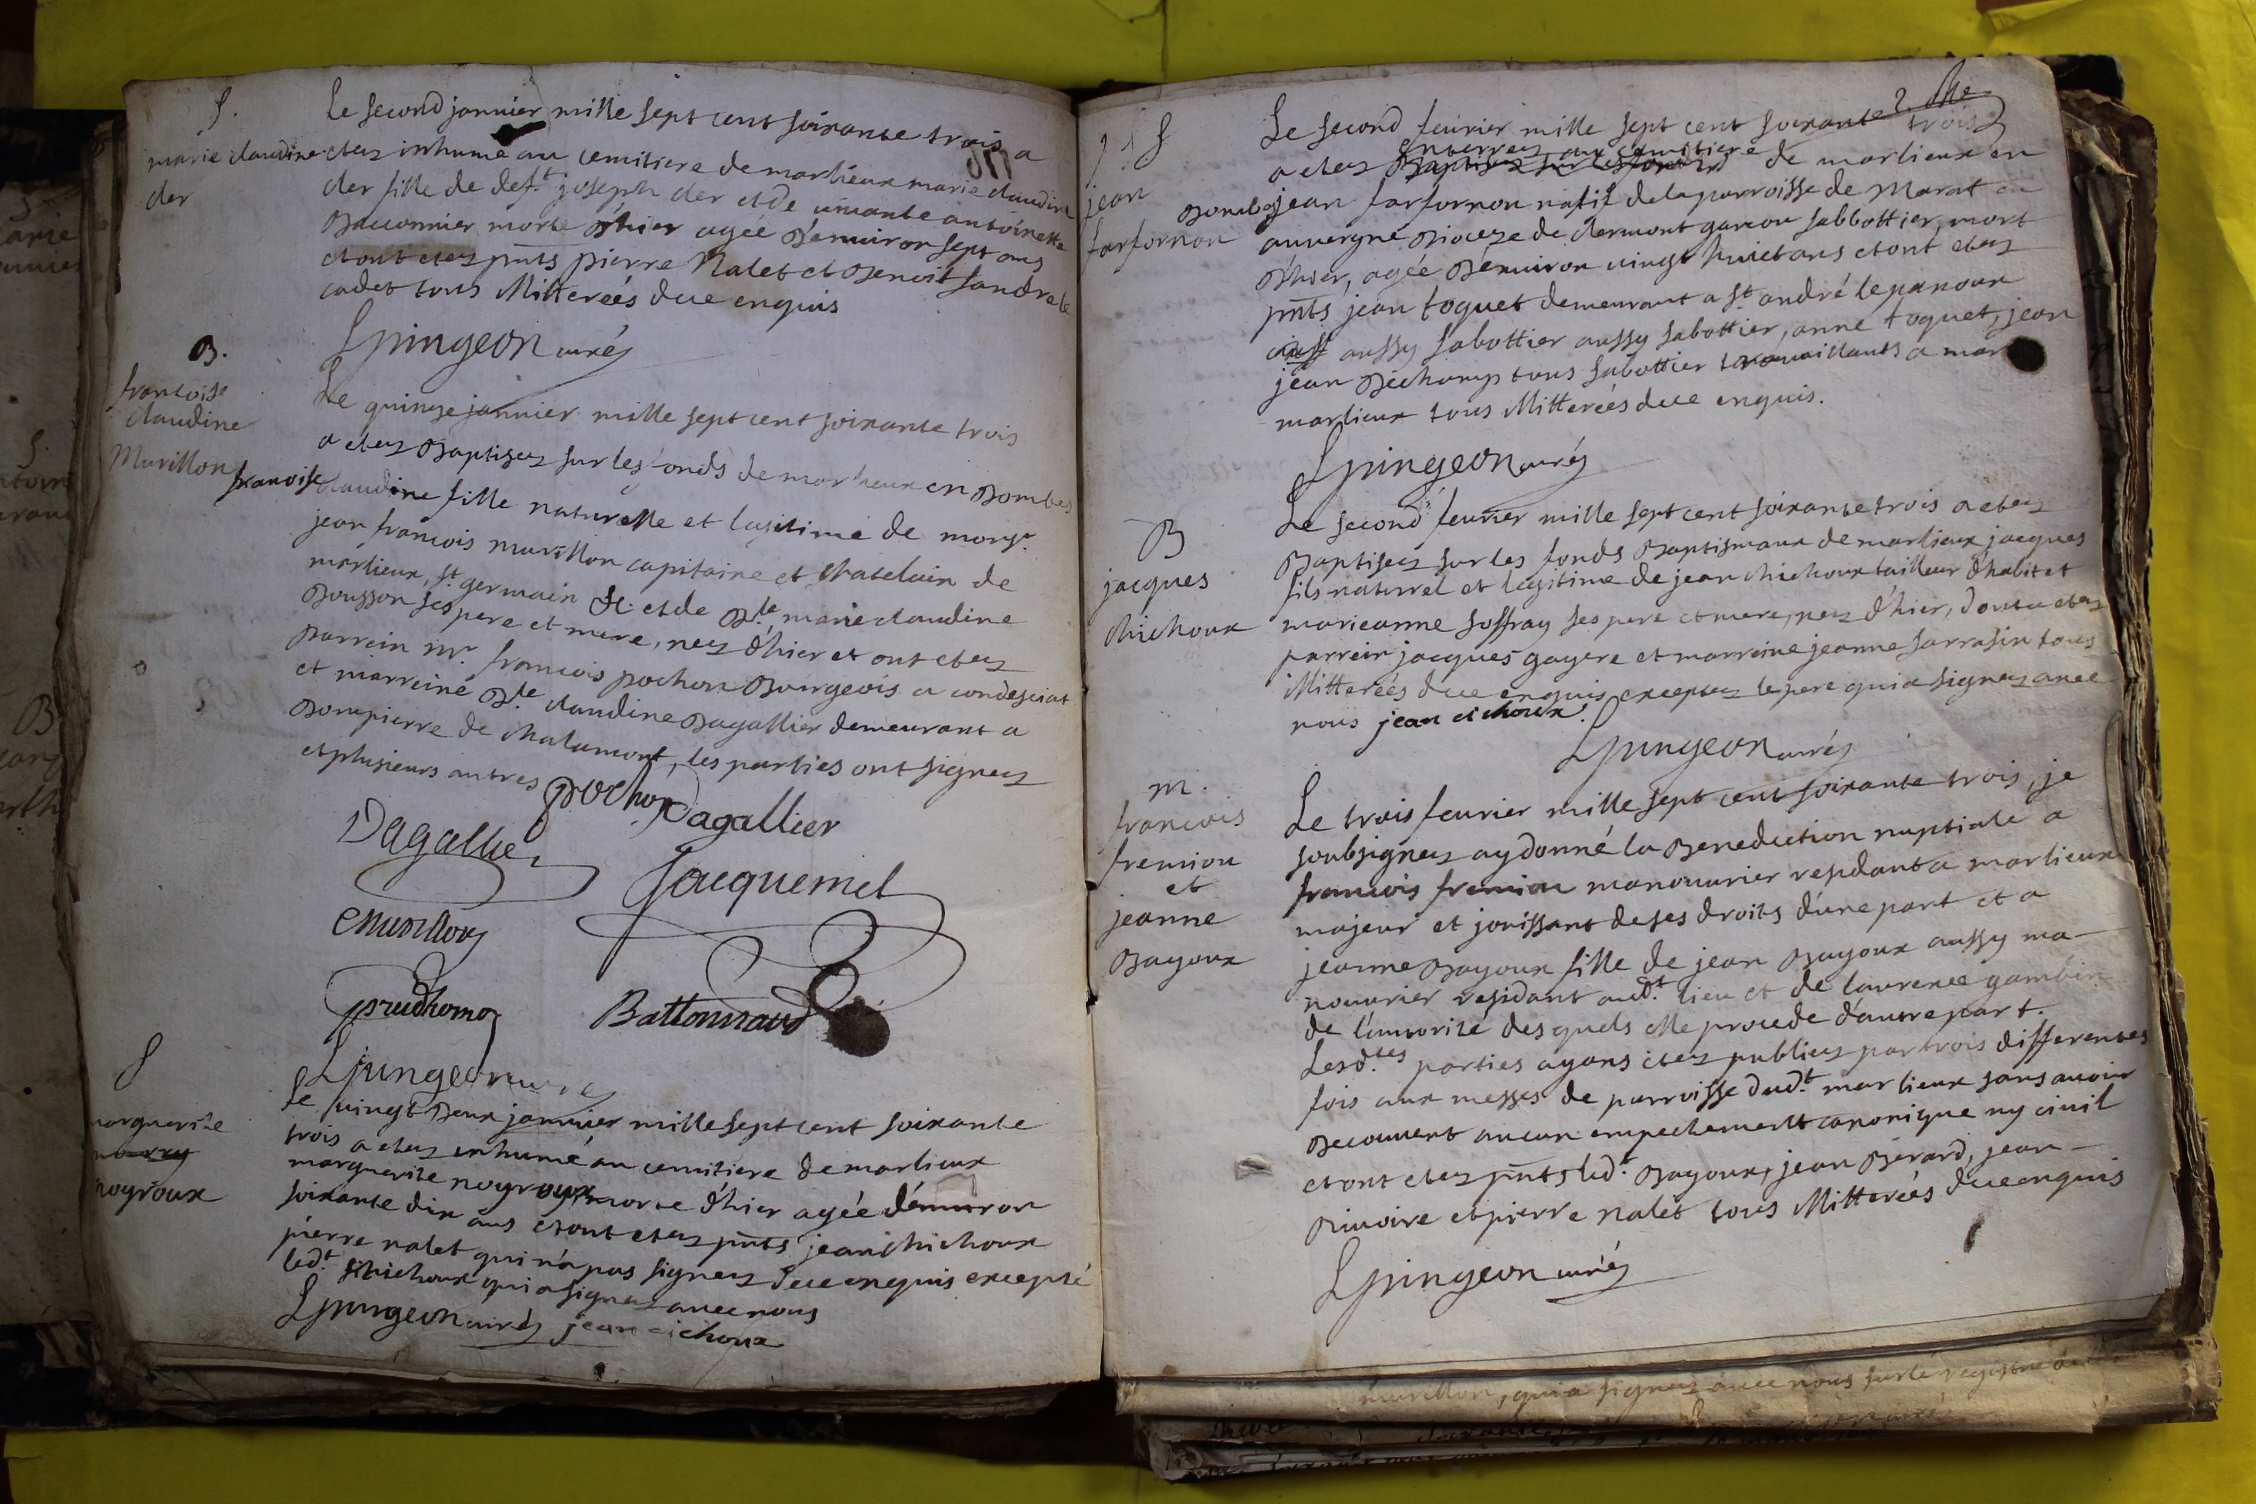 S.
marie claudine
der
Le second janvier mille sept cent soixante trois a
etez inhumé au cemitiere de marlieux marie claudine
der fille de deft. joseph der et de vivante antoinette
Baconnier morte d'hier agée d'environ sept ans
et ont etez pnts pierre Nalet et Benoit
cadet tous illitereés due enquis
Spingeon curéz
B.
francoise
claudine
Murillon
Le quinze janvier mille sept cent soixante trois
a etez Baptisez sur les fonds de marlieux en Dombes
francoise claudine fille naturelle et legitime de monsr.
jean francois murillon capitaine et chatelain de
marlieux, st. germain &c. et de Dlle. marie claudine
Bousson ses pere et mere, nez d'hier et ont etez
parrein mr. francois pochon Bourgeois a condesciat
et marreine Dlle claudine Dagallier demeurant a
Dompierre de chalamont, les parties ont signez
et plusieurs autres
pochon
Dagallier
Dagallier
Jacquemet
Murillon
prudhomo
Battonnaud
Spingeon curéz
S
marguerite
noyroux
Le vingt Deux janvier mille sept cent soixante
trois a etez inhumé au cemitiere de marlieux
marguerite noyroux morte d'hier agée d'environ
soixante dix ans et ont etez pnts jean chichoux
pierre nalet qui n'a pas signez due enquis excepté
ledt. chichoux qui a signez avec nous
Spingeon curéz jean cichoux
2.
S
jean
farfornon
Le second fevrier mille sept cent soixante trois
a etez enterrez au cemitiere de marlieux en
Dombes jean farfornon natif de la parroisse de Marat en
auvergne Dioceze de clermont garcon sabbottier, mort
d'hier, agée d'environ vingt huict ans et ont etez
pnts jean toquet demeurant a st. andré le panoux
aussy sabottier aussy sabottier, anne toquet, jean
jean Dechamp tous sabottier travaillants a mar
marlieux tous illitereés due enquis.
Spingeon curéz
B
jacques
chichoux
Le second fevrier mille sept cent soixante trois a etez
Baptisez sur les fonds Baptismaux de marlieux jacques
fils naturel et legitime de jean chichoux tailleur d'habit et
marieanne soffray ses pere et mere, nez d'hier, dont a etez
parrein jacques gayere et marreine jeanne sarrasin tous
illitereés due enquis exceptez le pere qui a signez avec
nous jean cichoux.
Spingeon curéz
m.
francois
fremion
et
jeanne
Bayoux
Le trois fevrier mille sept cent soixante trois, je
soubsignez ay donné la Benediction nuptiale a
francois fremion manouvrier residant a marlieux
majeur et jouissant de ses droits d'une part et a
jeanne Bayoux fille de jean Bayoux aussy ma-
nouvrier residant audt. lieu et de laurence gambin
de l'autorité des quels elle procede d'autre part.
Lesdtes parties ayans etez publiez par trois differentes
fois aux messes de parroisse dudt. marlieux sans avoir
Decouvert aucun empechement canonique ny civil
et ont etez pnts ledt. Bayoux, jean Bérard, jean
Rivoire et pierre nalet tous illitereés due enquis
Spingeon curéz
murillon, qui a signez avec nous sur le registre